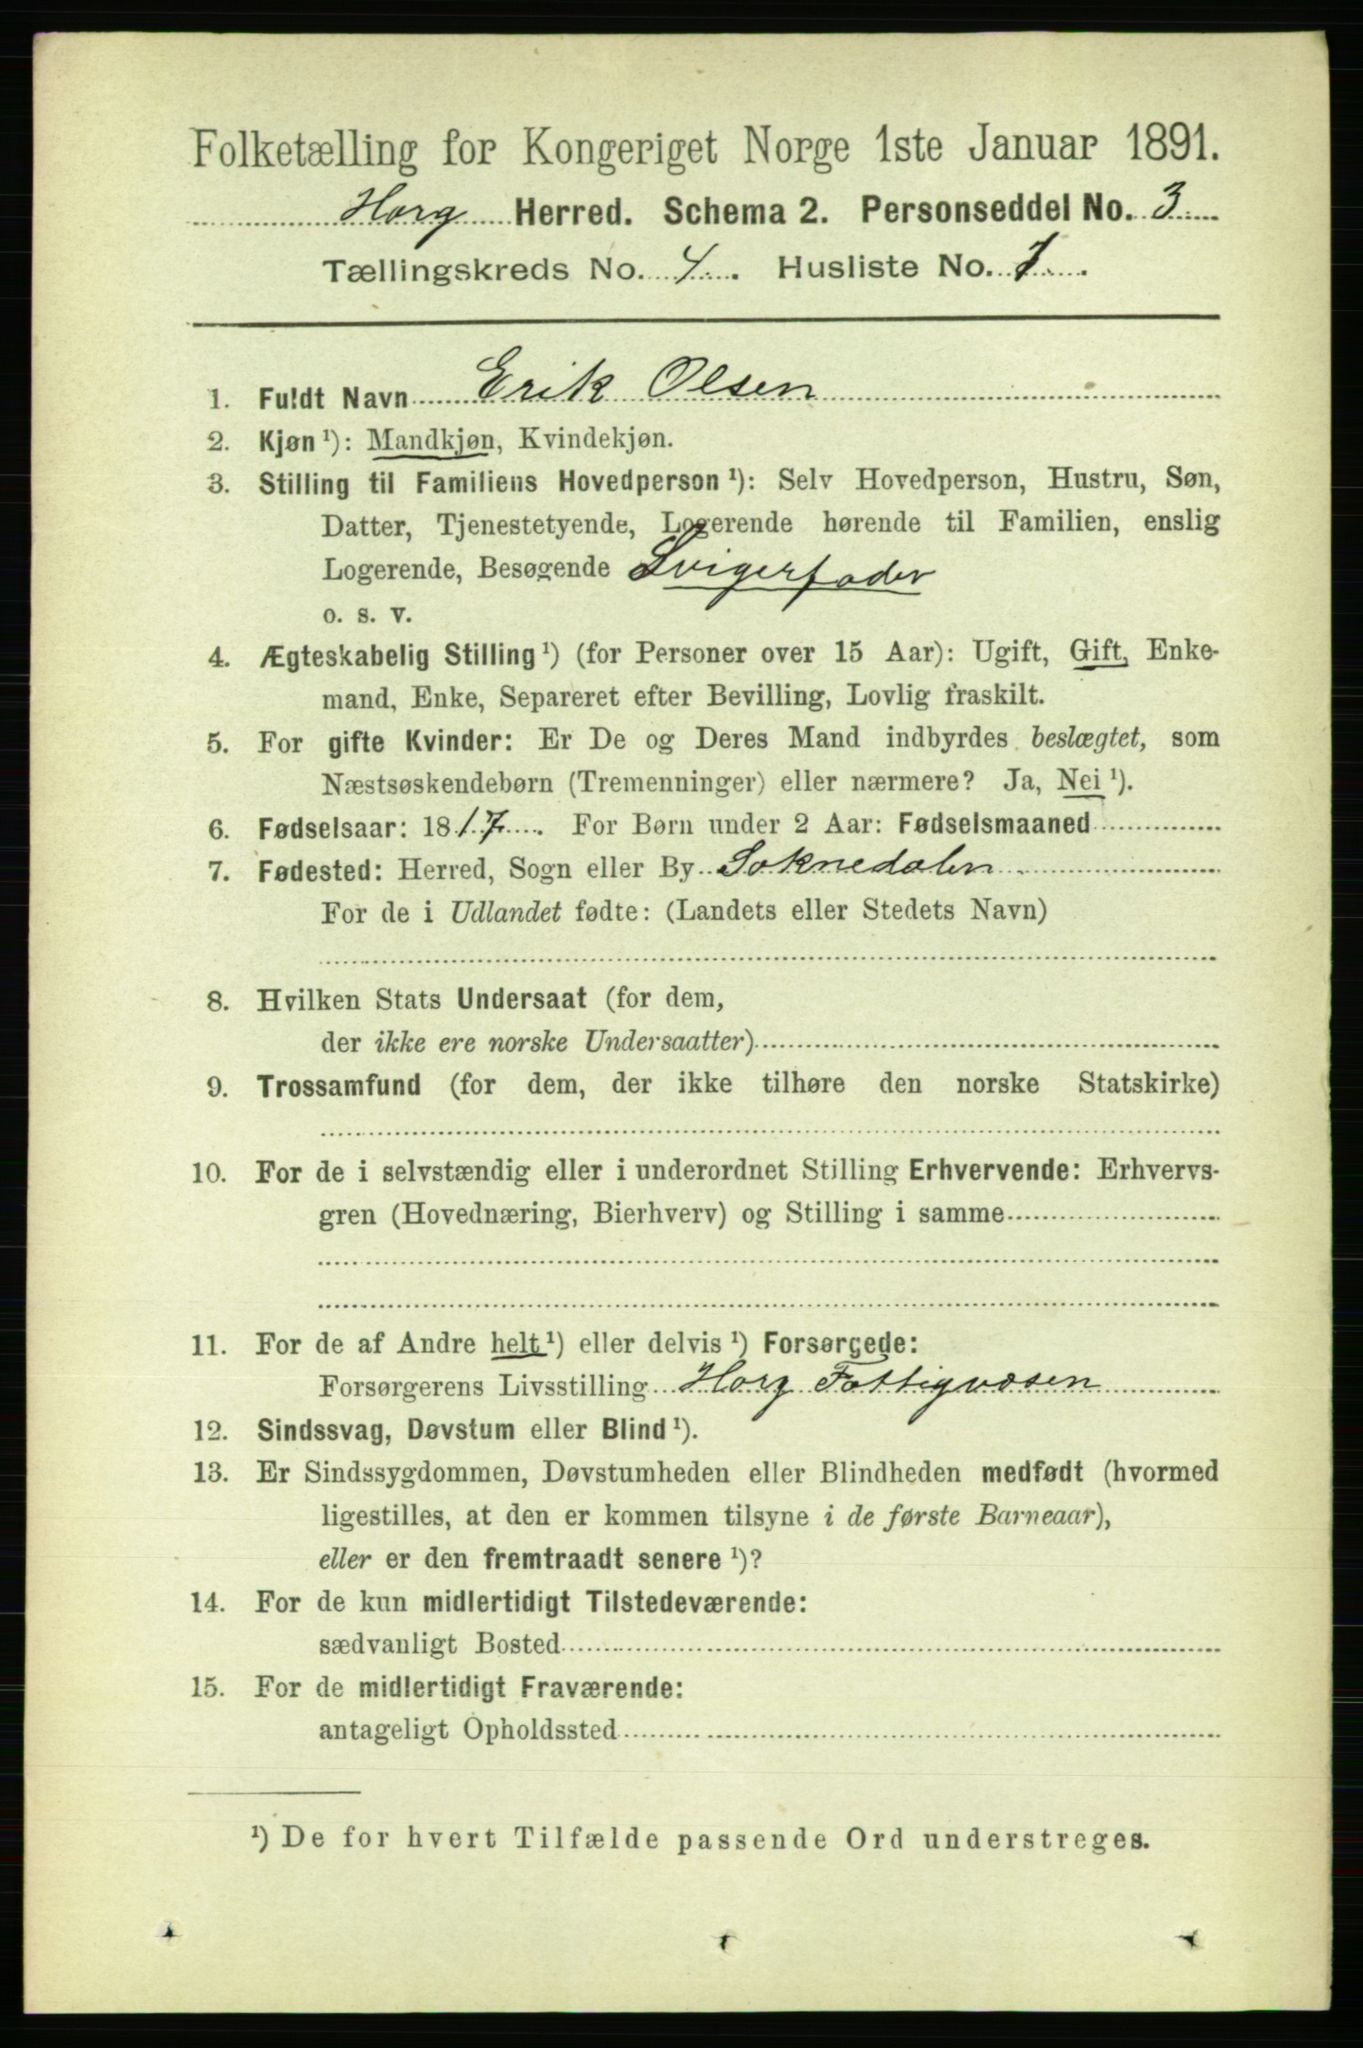 Folketælling for Kongeriget Norge 1ste Januar 1891.
Horg Herred. Schema 2. Personseddel No. 3
Tællingskreds No. 4. Husliste No. 7.
1. Fuldt Navn Erik Olsen
2. Kjøn ¹): Mandkjøn, Kvindekjøn.
3. Stilling til Familiens Hovedperson ¹): Selv Hovedperson, Hustru, Søn,
Datter, Tjenestetyende, Logerende hørende til Familien, enslig
Logerende, Besøgende Svigerfader
o. s. v.
4. Ægteskabelig Stilling ¹) (for Personer over 15 Aar): Ugift, Gift, Enke-
mand, Enke, Separeret efter Bevilling, Lovlig fraskilt.
5. For gifte Kvinder: Er De og Deres Mand indbyrdes beslægtet, som
Næstsøskendebørn (Tremenninger) eller nærmere? Ja, Nei ¹).
6. Fødselsaar: 1817. For Børn under 2 Aar: Fødselsmaaned
7. Fødested: Herred, Sogn eller By Soknedalen
For de i Udlandet fødte: (Landets eller Stedets Navn)
8. Hvilken Stats Undersaat (for dem,
der ikke ere norske Undersaatter)
9. Trossamfund (for dem, der ikke tilhøre den norske Statskirke)
10. For de i selvstændig eller i underordnet Stilling Erhvervende: Erhvervs-
gren (Hovednæring, Bierhverv) og Stilling i samme
11. For de af Andre helt ¹) eller delvis ¹) Forsørgede:
Forsørgerens Livsstilling Horg Fattigvæsen
12. Sindssvag, Døvstum eller Blind ¹).
13. Er Sindssygdommen, Døvstumheden eller Blindheden medfødt (hvormed
ligestilles, at den er kommen tilsyne i de første Barneaar),
eller er den fremtraadt senere ¹)?
14. For de kun midlertidigt Tilstedeværende:
sædvanligt Bosted
15. For de midlertidigt Fraværende:
antageligt Opholdssted
¹) De for hvert Tilfælde passende Ord understreges.